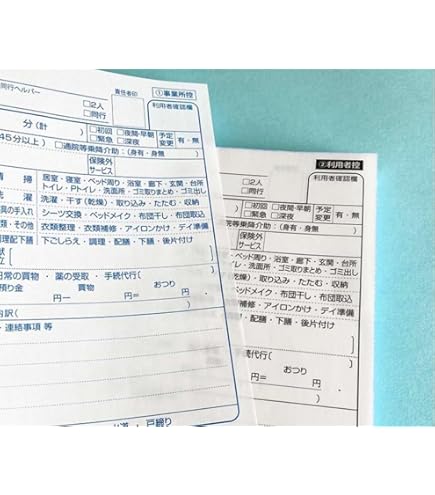 同行ヘルパー
責任者印
①事業所控
□2人
□同行
利用者確認欄
分(計
)
□初回 □夜間・早朝
□緊急 □深夜
予定
変更
有・無
45分以上)
□通院等乗降介助:(身有・身無)
保険外
サービス
清 掃
居室・寝室・ベッド周り・浴室・廊下・玄関・台所
トイレ・Pトイレ・洗面所・ゴミ取りまとめ・ゴミ出し
洗 濯
洗濯・干す(乾燥)・取り込み・たたむ・収納
具の手入れ
シーツ交換・ベッドメイク・布団干し・布団取込
類・その他
衣類整理・衣類補修・アイロンかけ・デイ準備
理配下膳
下ごしらえ・調理・配膳・下膳・後片付け
献
立
日常の買物 ・ 薬の受取 ・ 手続代行(
預り金
買物
おつり
円ー
円=
円
内訳(
・連絡事項 等
・ 戸締り
②利用者控
□2人
□同行
利用者確認欄
□初回 □夜間・早朝
□緊急 □深夜
予定
変更
有・無
乗降介助:(身有・身無)
保険外
サービス
ベッド周り・浴室・廊下・玄関・台所
・洗面所・ゴミ取りまとめ・ゴミ出し
乾燥)・取り込み・たたむ・収納
ッドメイク・布団干し・布団取込
補修・アイロンかけ・デイ準備
理・配膳・下膳・後片付け
続代行(
)
おつり
円=
円